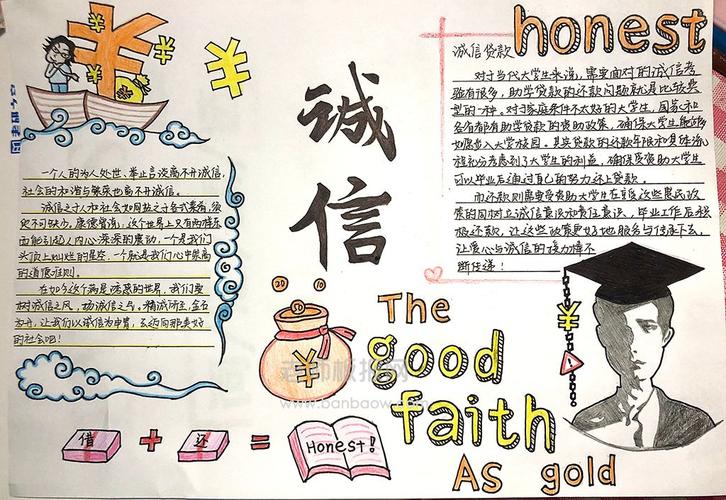 honest
诚信
诚信贷款
对于当代大学生来说，需要面对的诚信考
验有很多，助学贷款的还款问题就是比较典
型的一种。对于家庭条件不太好的大学生，国家和
各省都有助学贷款的资助政策，确保大学生能够
如愿步入大学校园。其实贷款的还款年限和具体流
程充分考虑到了大学生的利益，确保受资助大学生
可以毕业后通过自己的努力还上贷款。
而还款则需要受资助大学生在享受这些惠民政
策的同时树立诚信意识和责任意识，毕业工作后积
极还款，让这些政策更好地服务与传承下去，
让爱心与诚信的接力棒不
断传递！
一个人的为人处世、举止言谈离不开诚信，
社会的和谐与繁荣也离不开诚信。
诚信之于人和社会如同盐之于各式菜肴，须
臾不可缺少。康德曾说：这个世界上只有两样东
西能引起人内心深深的震动，一个是我们
头顶上灿烂的星空，一个就是我们心中崇高
的道德准则。
在如今这个满是诱惑的世界，我们要
树诚信之风，扬诚信之名。精诚所至，金石
为开，让我们以诚信为甲胄，去迈向那美好
的社会吧！
The
good
faith
As gold
借 + 还 = Honest!
老师板报网
www.banbaow.com